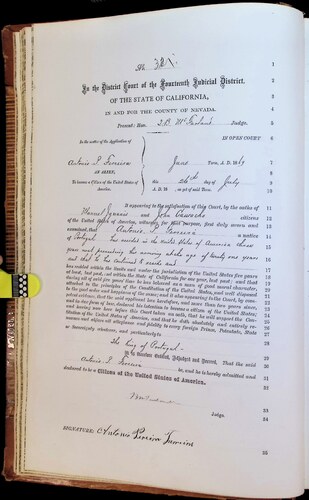 No. 321.
In the District Court of the Fourteenth Judicial District.
OF THE STATE OF CALIFORNIA,
IN AND FOR THE COUNTY OF NEVADA.
Present: Hon. T. B. McFarland Judge.
In the matter of the Application of
IN OPEN COURT
Antonio P. Ferreira June Term, A. D. 1869
AN ALIEN, this 26th day of July
To become a Citizen of the United States of America. A. D. 18 , as yet of said Term
It appearing to the satisfaction of this Court, by the oaths of
Manuel Ignacio and John citizens
of the United States of America, witnesses for that purpose, first duly sworn and
examined, that Antonio P. Ferreira a native
of Portugal has resided in the United States of America three
years next preceding the arriving at the age of twenty one years
and that he has continued to reside and
has resided within the limits and under the jurisdiction of the United States five years
at least, last past, and within the State of California for one year, last past; and that
during all of said five years' time he has behaved as a man of good moral character,
attached to the principles of the Constitution of the United States, and well disposed
to the good order and happiness of the same; and it also appearing to the Court, by com-
petent evidence, that the said applicant has heretofore, and more than two years since,
and in due form of law, declared his intention to become a citizen of the United States,
and having now here before this Court taken an oath, that he will support the Con-
stitution of the United States of America, and that he doth absolutely and entirely re-
nounce and abjure all allegiance and fidelity to every foreign Prince, Potentate, State
or Sovereignty whatever, and particularly to
The King of Portugal
It is therefore Ordered, Adjudged and Decreed, That the said
Antonio P. Ferreira be, and he is hereby admitted and
declared to be a Citizen of the United States of America.
Judge.
SIGNATURE: Antonio Pereira Ferreira